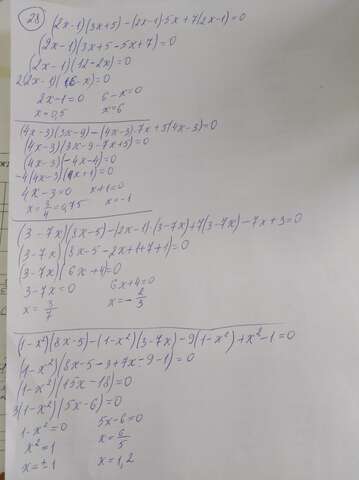 28) (2x-1)(3x+5)-(2x-1)5x+7(2x-1)=0
(2x-1)(3x+5-5x+7)=0
(2x-1)(12-2x)=0
2(2x-1)(6-x)=0
2x-1=0 6-x=0
x=0,5 x=6
(4x-3)(3x-9)-(4x-3)·7x+5(4x-3)=0
(4x-3)(3x-9-7x+5)=0
(4x-3)(-4x-4)=0
-4(4x-3)(x+1)=0
4x-3=0 x+1=0
x=3/4=0,75 x=-1
(3-7x)(8x-5)-(2x-1)·(3-7x)+7(3-7x)-7x+3=0
(3-7x)(8x-5-2x+1+7+1)=0
(3-7x)(6x+4)=0
3-7x=0 6x+4=0
x=3/7 x=-2/3
(1-x²)(8x-5)-(1-x²)(3-7x)-9(1-x²)+x²-1=0
(1-x²)(8x-5-3+7x-9-1)=0
(1-x²)(15x-18)=0
3(1-x²)(5x-6)=0
1-x²=0 5x-6=0
x²=1 x=6/5
x=±1 x=1,2